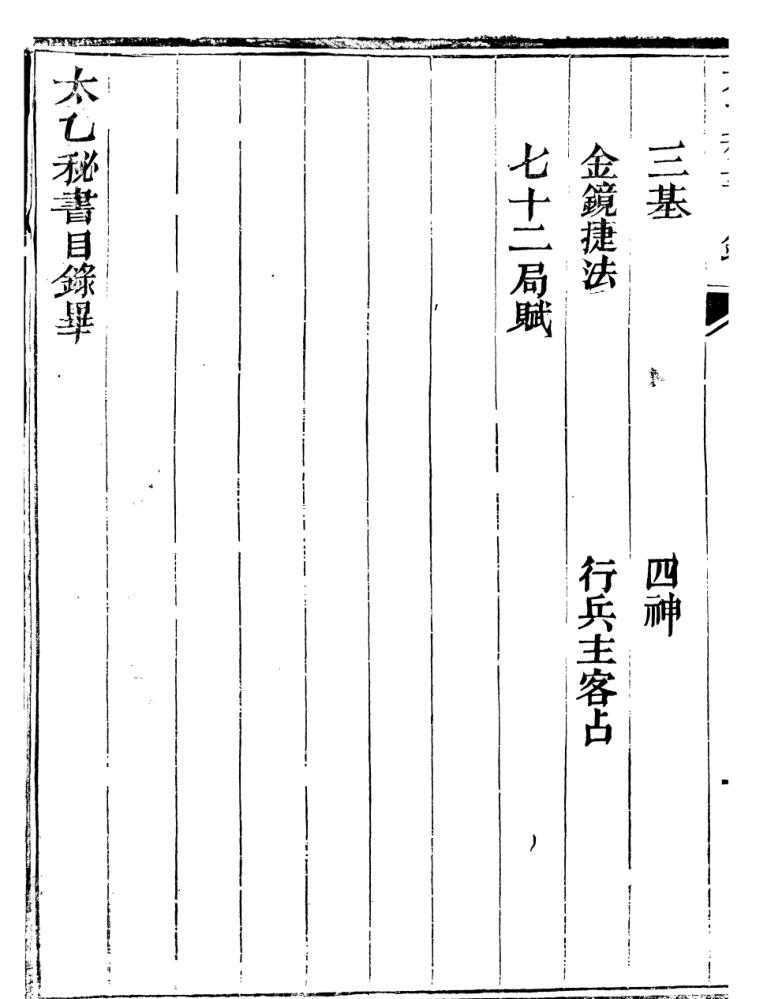 三基　四神
金鏡捷法　行兵主客占
七十二局賦
太乙秘書目錄畢